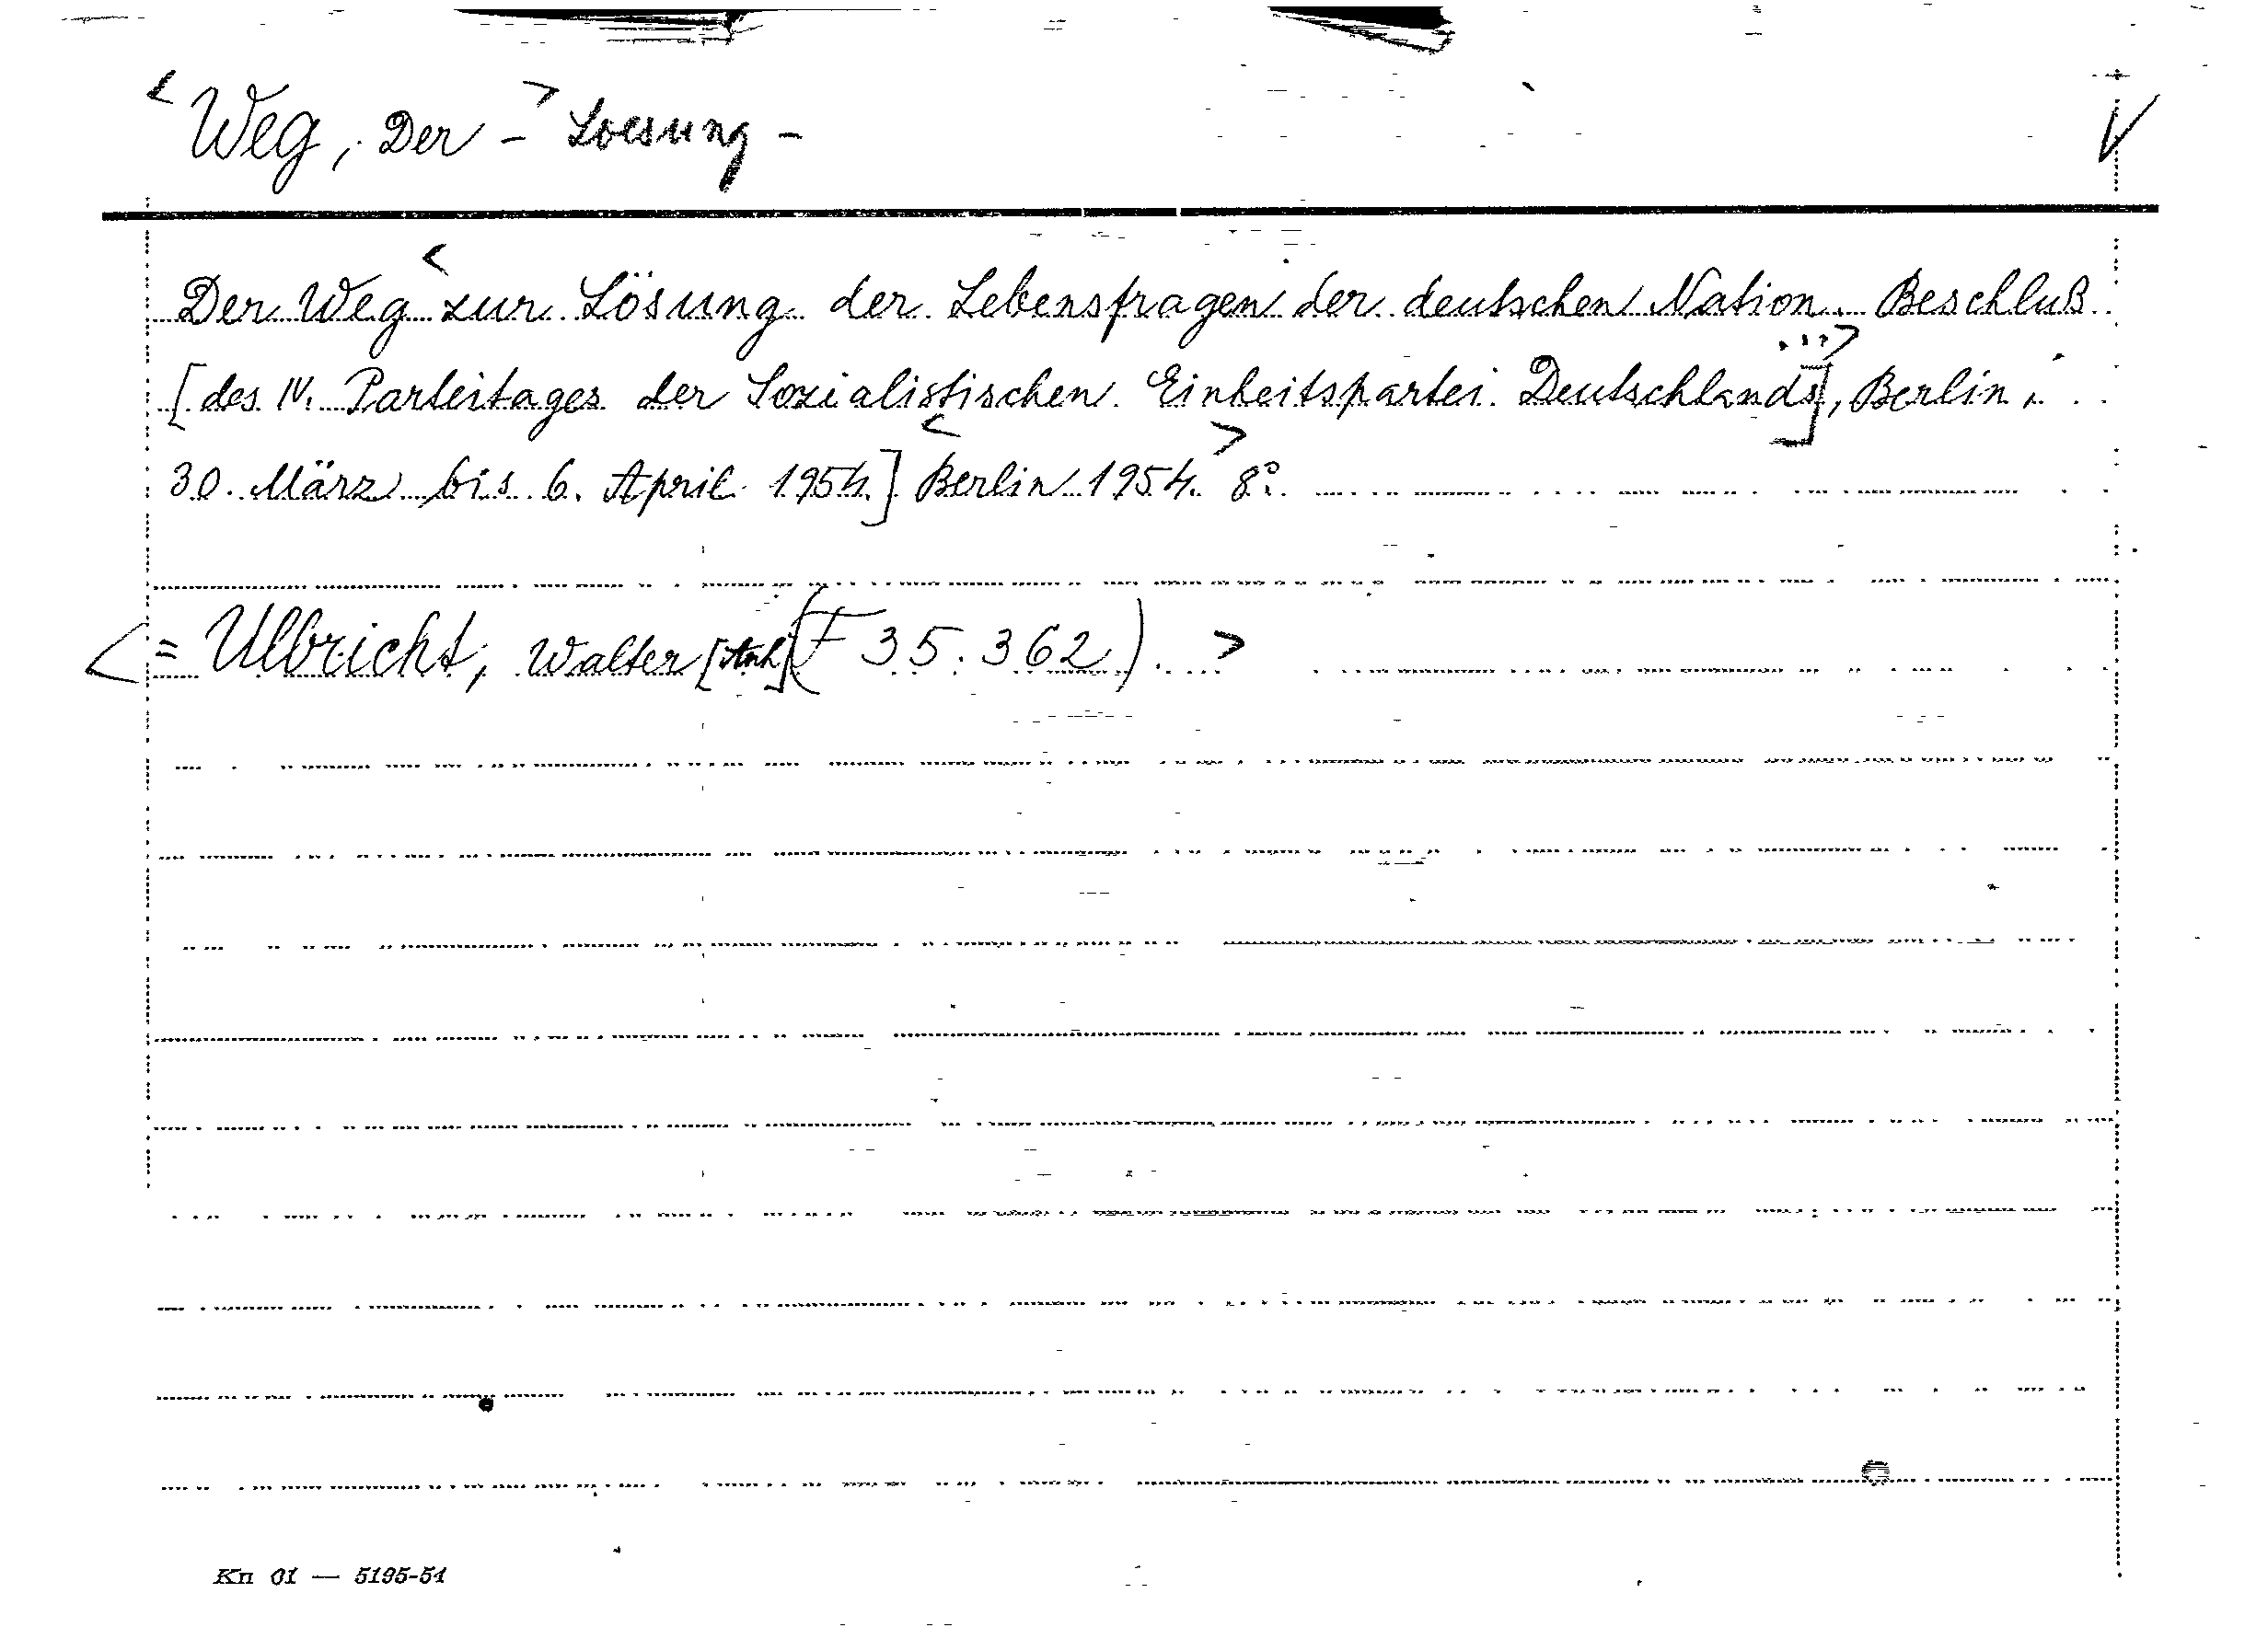 <Weg, Der -> Loesung -
Der Weg <zur Lösung der Lebensfragen der deutschen Nation. Beschluß
[des IV. Parteitages der Sozialistischen Einheitspartei Deutschlands], ...> Berlin,
30. März bis 6. April 1954.] <Berlin 1954.> 8°.
<= Ulbricht, Walter [Anh] (F 35.362).>
Kn 01 — 5195-54